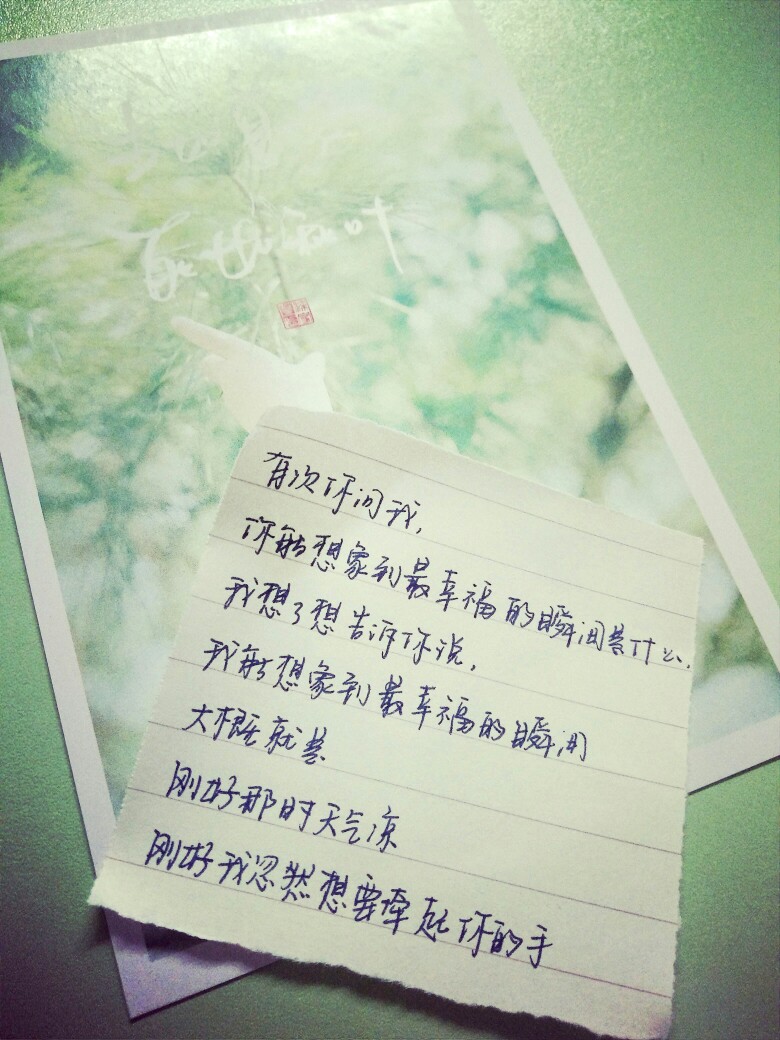 有次你问我,
你能想象到最幸福的瞬间是什么,
我想了想告诉你说,
我能想象到最幸福的瞬间
大概就是
刚好那时天气凉
刚好我忽然想要牵起你的手